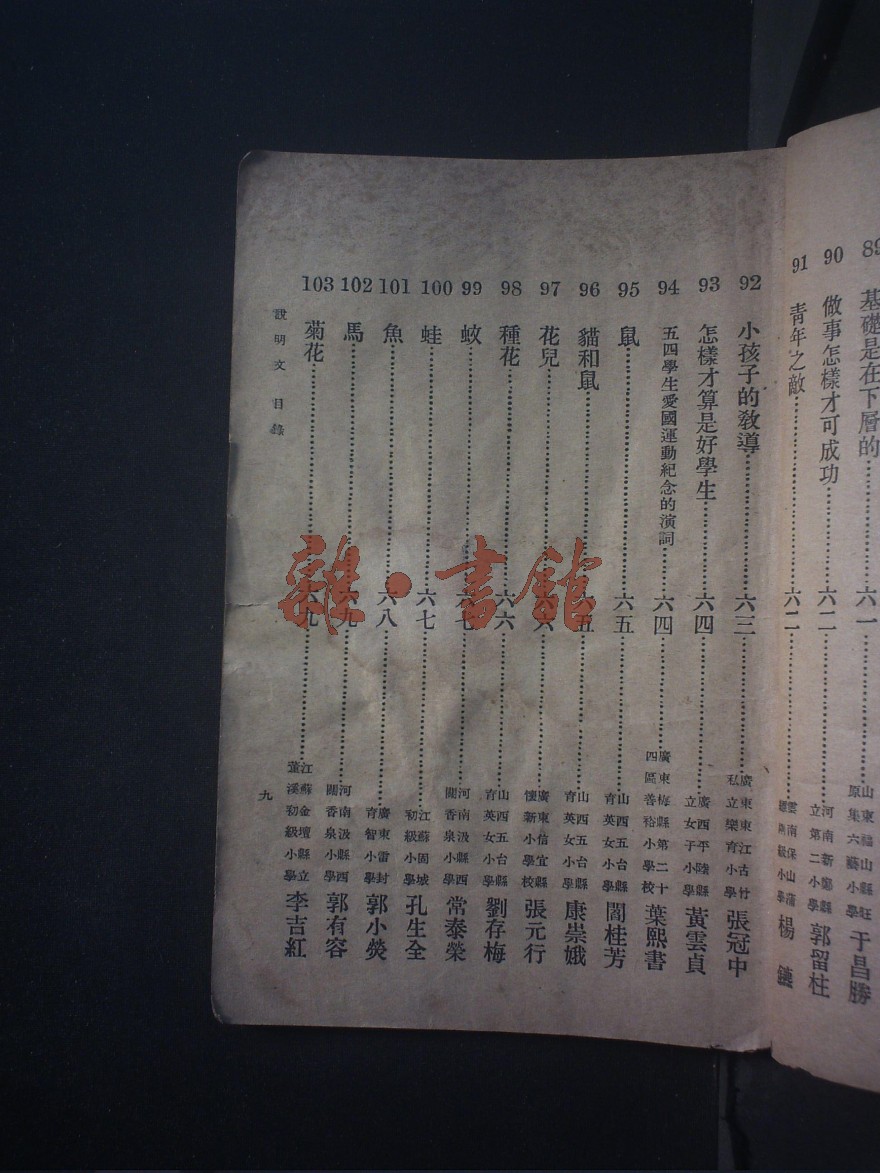 89 基礎是在下層的……六一……山東福山縣旺原集六藝小學 于昌勝
90 做事怎樣才可成功……六二……河南新鄭縣立第二小學 郭留柱
91 青年之敵……六二……雲南保山 級小學 楊
92 小孩子的教導……六三……廣東東江古竹私立樂育小學 張冠中
93 怎樣才算是好學生……六四……廣西平陸縣立女子小學 黃雲貞
94 五四學生愛國運動紀念的演詞……六四……廣東梅縣第二十四區善裕小學校 葉熙書
95 鼠……六五……山西五台縣育英女小學 閻桂芳
96 貓和鼠……六五……山西五台縣育英女小學 康崇娥
97 花兒……六六……廣東信宜縣懷新小學校 張元行
98 種花……六六……山西五台縣育英女小學 劉存梅
99 蚊……六七……河南汲縣西關香泉小學 常泰榮
100 蛙……六七……江蘇固城初級小學 孔生全
101 魚……六八……廣東雷封育智小學 郭小熒
102 馬……六九……河南汲縣西關香泉小學 郭有容
103 菊花……六九……江蘇金壇縣立董溪初級小學 李吉紅
說明文 目錄
九
雜·書館